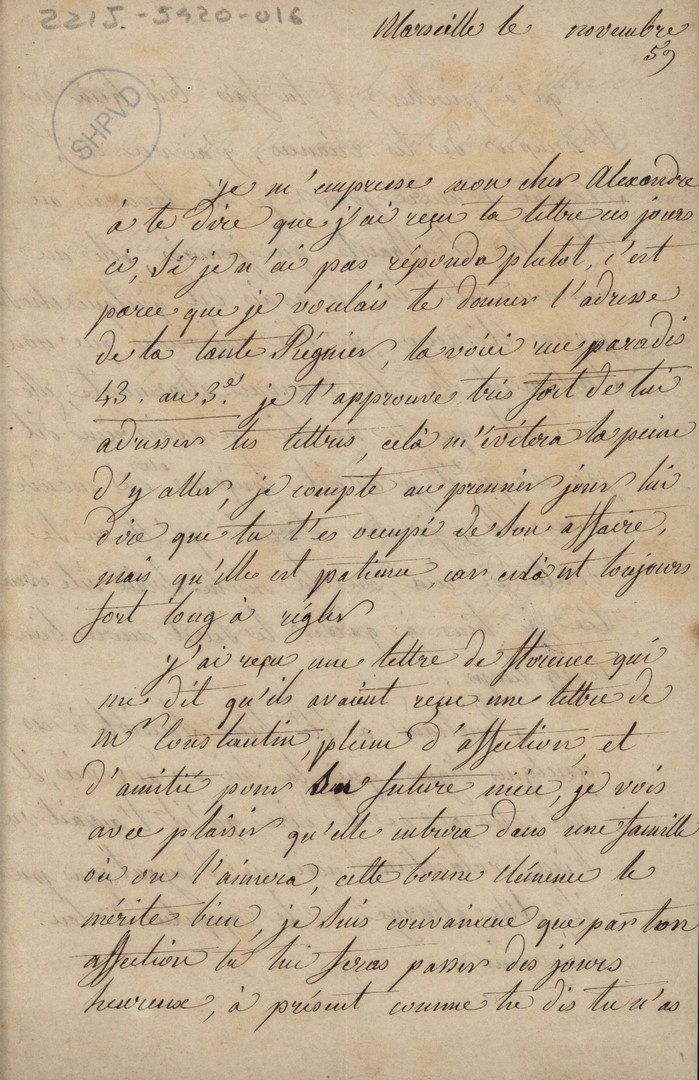 2215-5920-016
Marseille le novembre
59
SHPVD
je m'empresse mon cher Alexandre
à te dire que j'ai reçu ta lettre ces jours
ci, Si je n'ai pas répondu plutot, c'est
parce que je voulais te donner l'adresse
de la tante Régnier, la voici rue paradis
43. au 3e. je t'approuve très fort de lui
adresser tes lettres, celà m'évitera la peine
d'y aller, je compte au premier jour lui
dire que tu t'es occupé de son affaire,
mais qu'elle est patience, car celà est toujours
fort long à régler
j'ai reçu une lettre de florence qui
me dit qu'ils avaient reçu une lettre de
mr Constantin, pleine d'affection, et
d'amitié pour sa future nièce, je vois
avec plaisir qu'elle entrera dans une famille
où on l'aimera, cette bonne clémence le
mérite bien, je suis convaincue que par ton
affection tu lui feras passer des jours
heureuse, à présent comme tu dis tu n'as